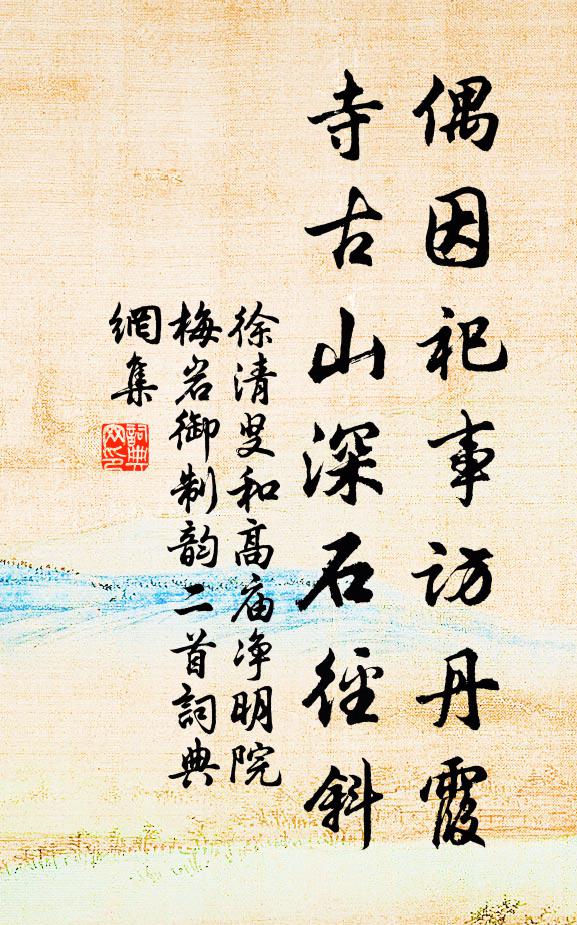 偶因祀事访丹霞
寺古山深石径斜
徐清叟和高庙净明院
梅岩御制韵二首词典
網集
詞典